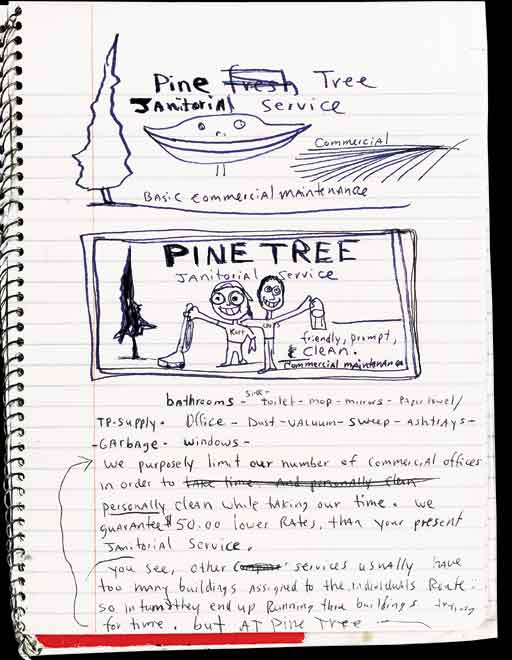 Pine fresh Tree
Janitorial Service
Commercial
Basic commercial maintenance
PINE TREE
Janitorial Service
Kurt
friendly, prompt,
& CLEAN.
Commercial maintenance
bathrooms - sink - toilet - mop - mirrors - Paper towel/
TP-supply. Office - Dust - vacuum - sweep - ashtrays -
- Garbage - windows -
We purposely limit our number of commercial offices
in order to take time. And personally Clean
personally clean while taking our time. we
guarantee $50.00 lower Rates, than your present
Janitorial service.
you see, other services usually have
too many buildings assigned to the individuals Route.
so in turn they end up Running thru buildings
for time. but AT Pine Tree